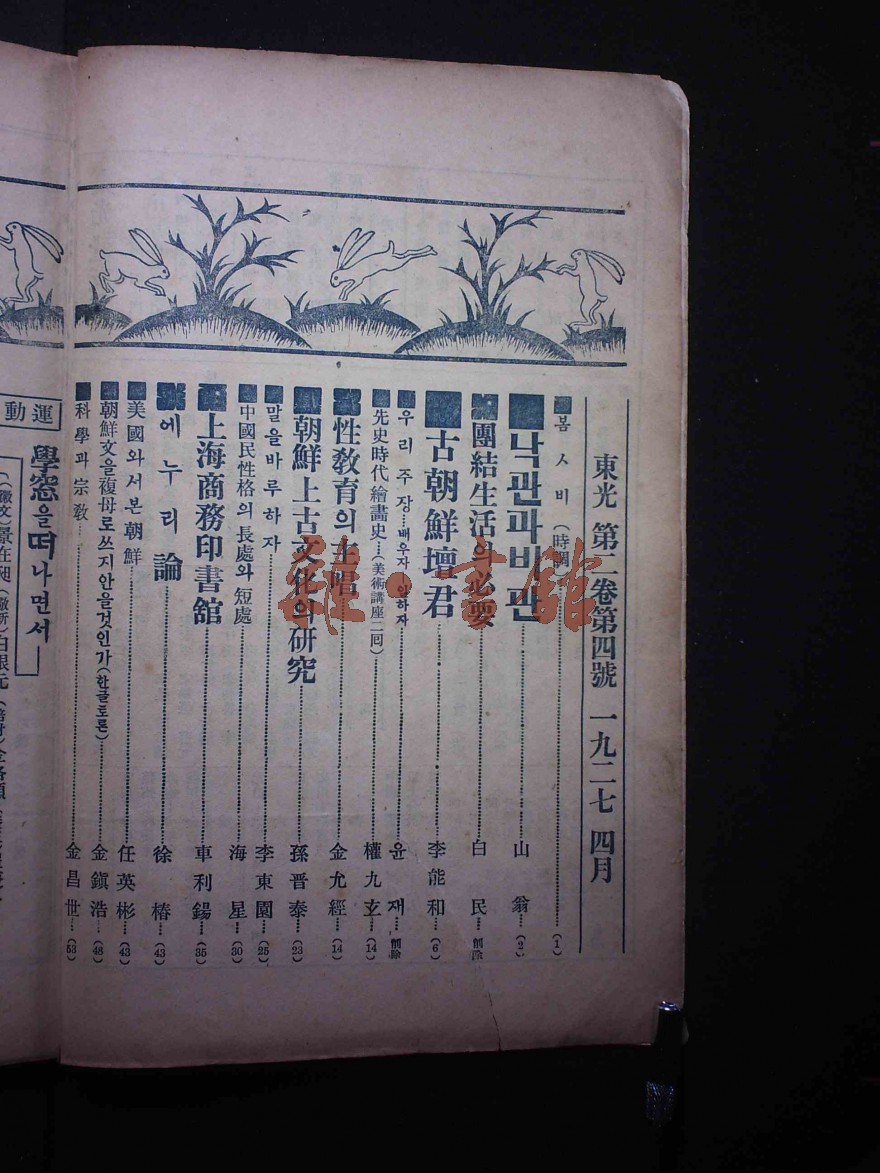 東光 第二卷第四號 一九二七 四月
봄ㅅ비(時調) (1)
낙관과비관 山翁 (2)
團結生活의必要 白民 削除
古朝鮮壇君 李能和 (6)
우리주장…배우자 일하자 윤재 削除
先史時代繪畫史…(美術講座二回) 權九玄 (14)
性敎育의主唱 金允經 (14)
朝鮮上古文化의硏究 孫晋泰 (23)
말을바루하자 李東園 (25)
中國民性格의長處와短處 海星 (30)
上海商務印書館 車利錫 (35)
에누리論 徐椿 (43)
美國와서본朝鮮 任英彬 (43)
朝鮮文을複母로쓰지안을것인가(한글토론) 金鎭浩 (48)
科學과宗敎 金昌世 (53)
運動
學窓을떠나면서
雜·書館